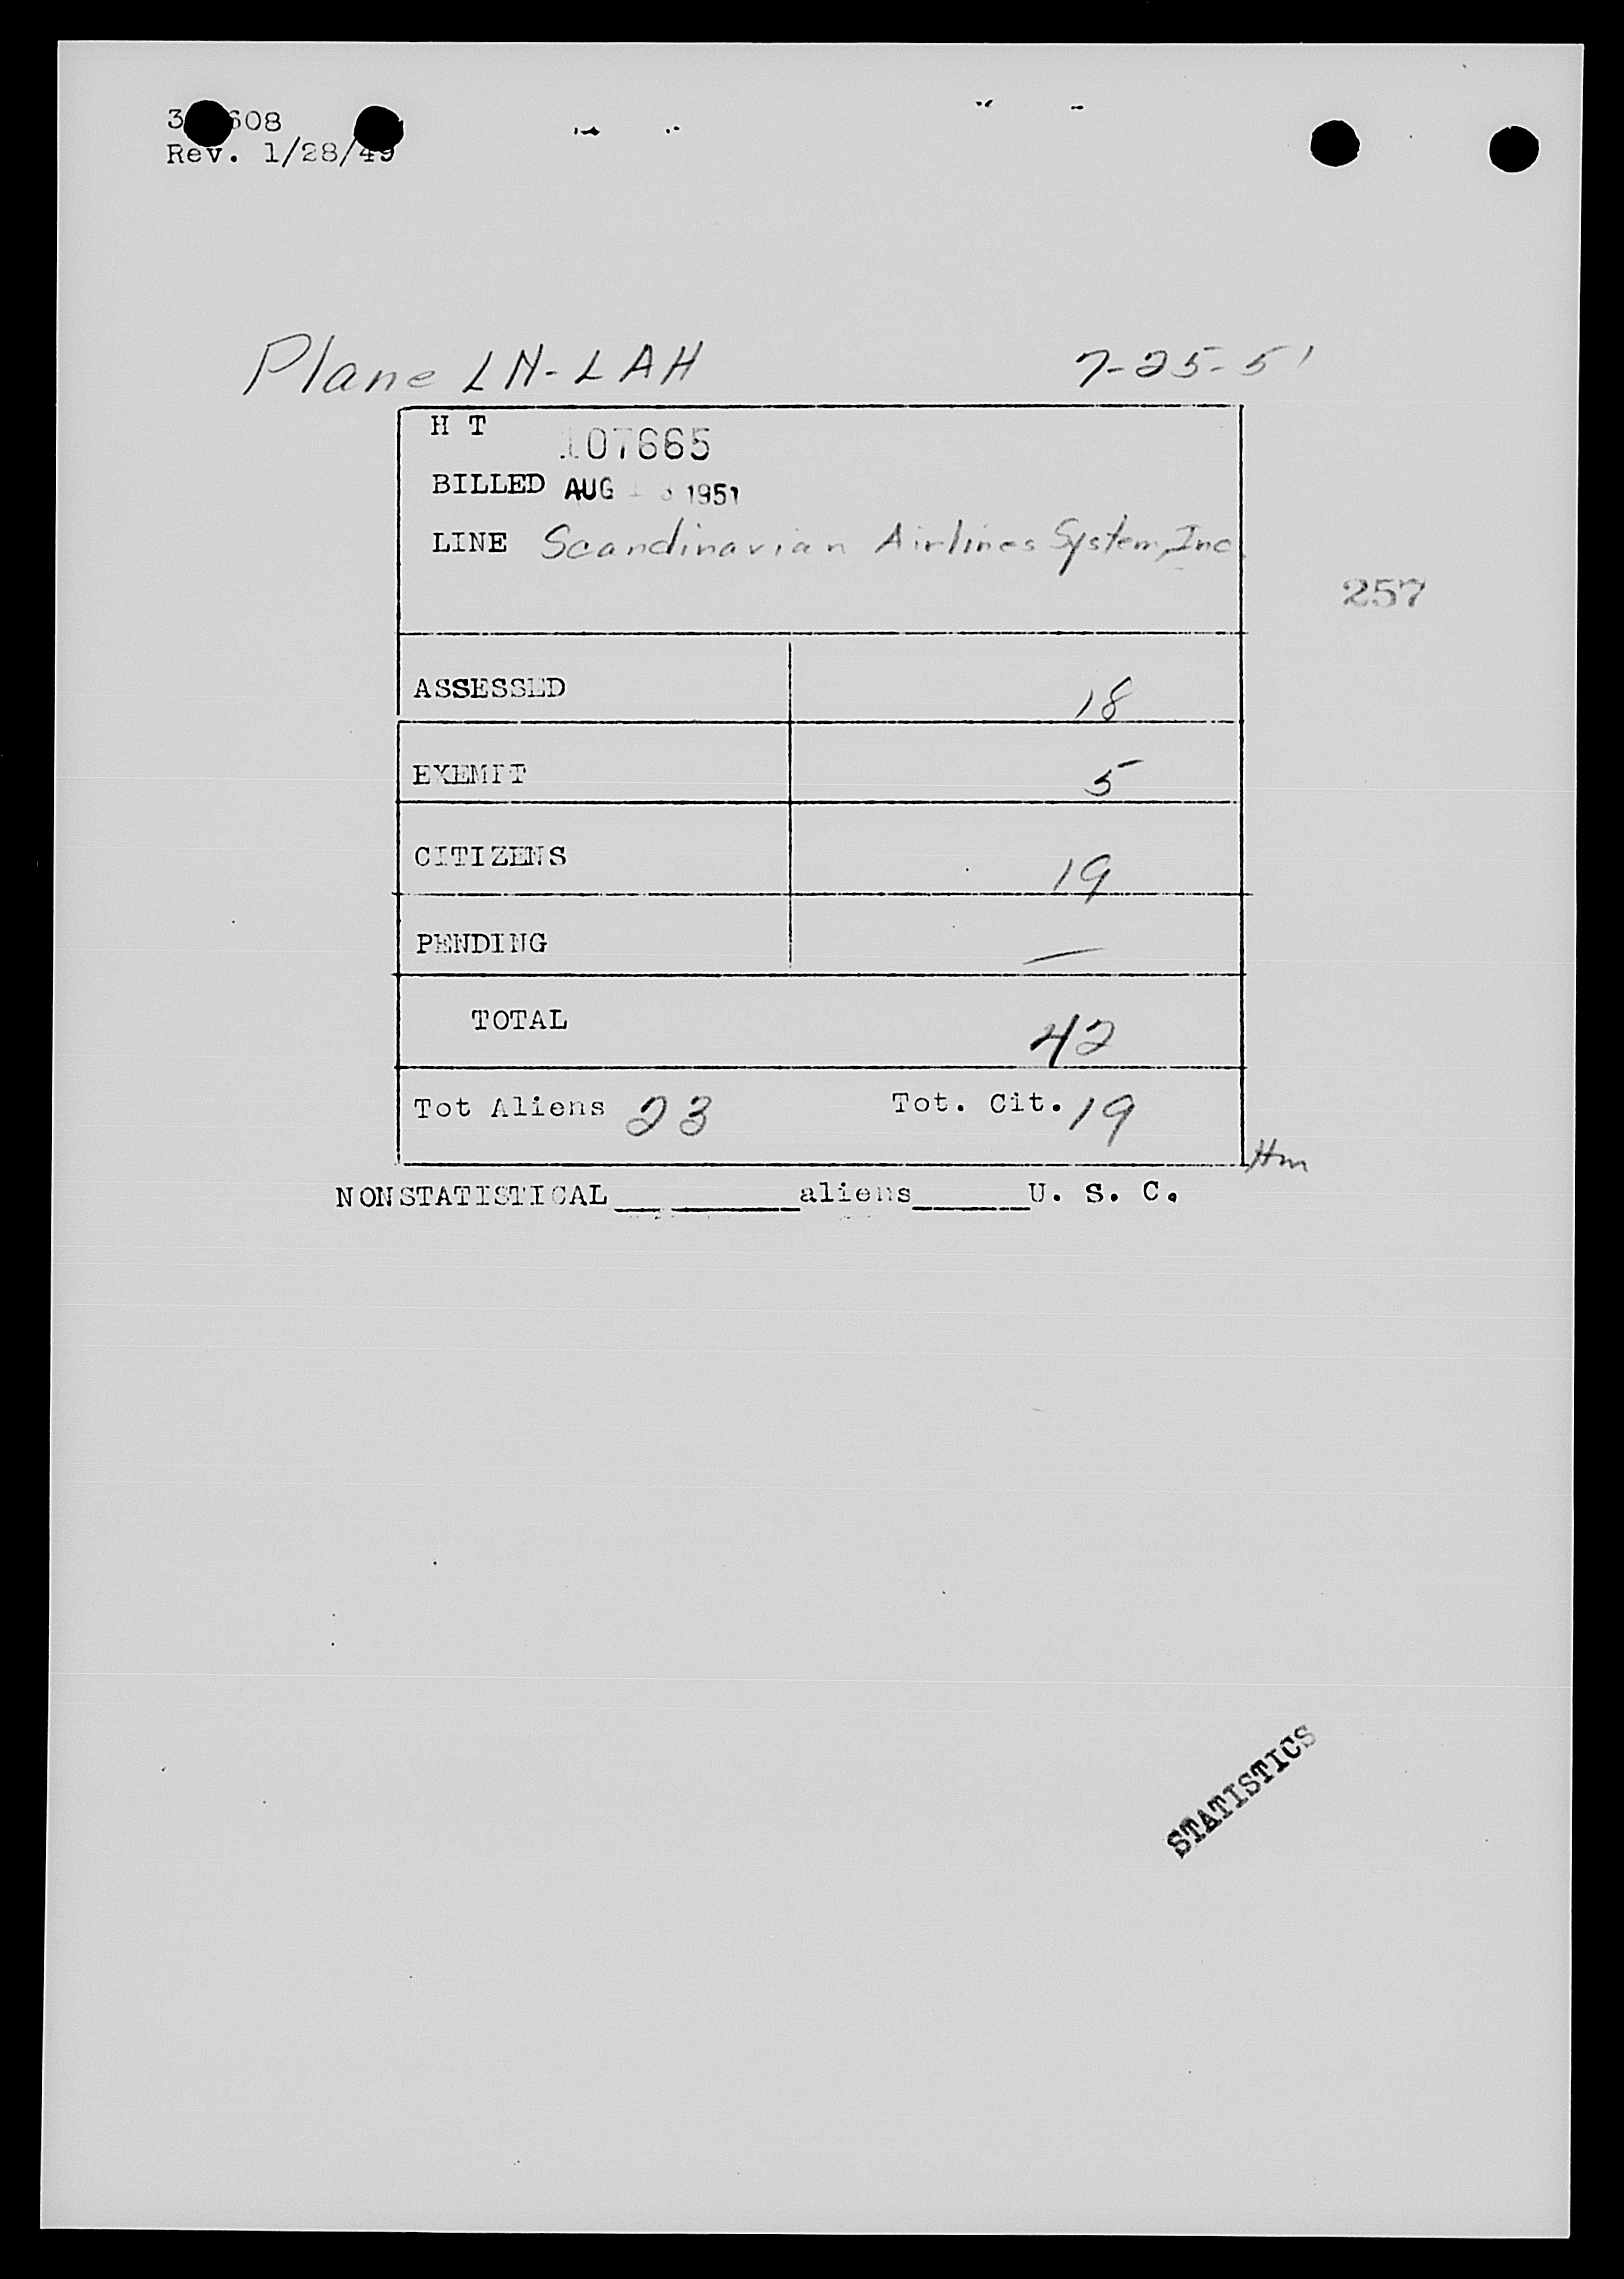 608
Rev. 1/28/49
Plane LN-LAH 7-25-51
H T 107665
BILLED AUG 1951
LINE Scandinavian Airlines System, Inc.
257
ASSESSED 18
EXEMPT 5
CITIZENS 19
PENDING —
TOTAL 42
Tot Aliens 23 Tot. Cit. 19
Hm
NONSTATISTICAL____ ________aliens______U. S. C.
STATISTICS